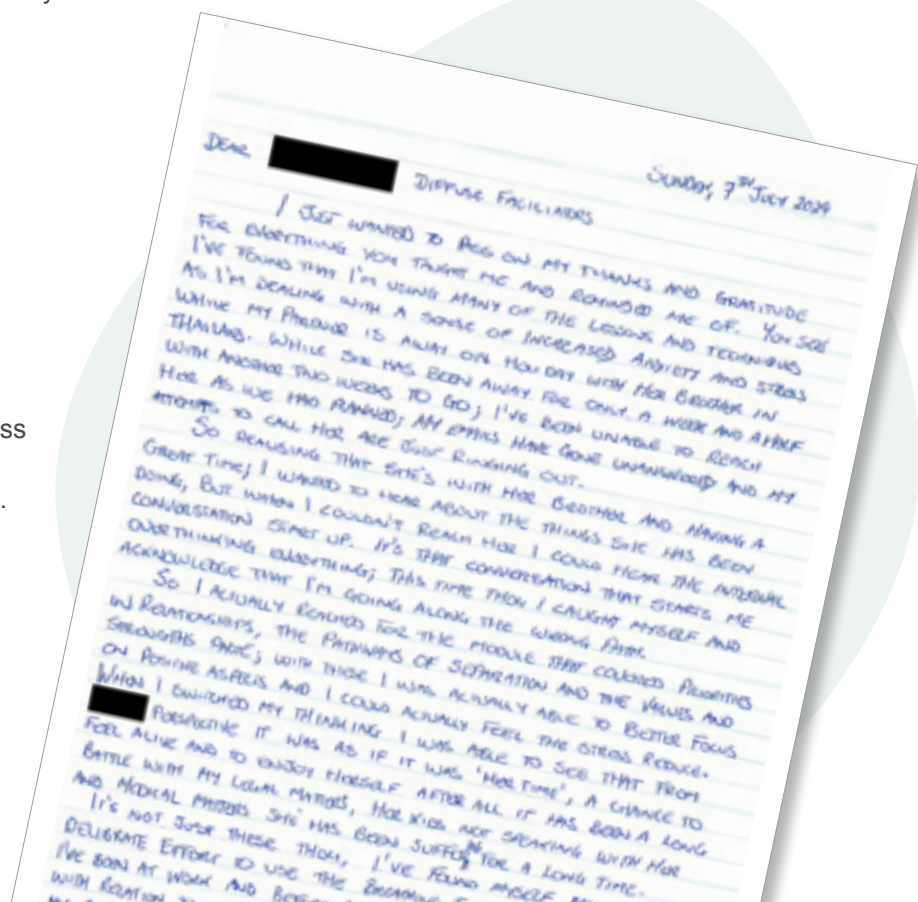 ss
.
DEAR
DIFFUSE FACILITATORS
SUNDAY, 7TH JULY 2024
I JUST WANTED TO PASS ON MY THANKS AND GRATITUDE
FOR EVERYTHING YOU TAUGHT ME AND REMINDED ME OF. YOU SEE
I'VE FOUND THAT I'M USING MANY OF THE LESSONS AND TECHNIQUES
AS I'M DEALING WITH A SENSE OF INCREASED ANXIETY AND STRESS
WHILE MY PARTNER IS AWAY ON HOLIDAY WITH HER BROTHER IN
THAILAND. WHILE SHE HAS BEEN AWAY FOR ONLY A WEEK AND A HALF
WITH ANOTHER TWO WEEKS TO GO; I'VE BEEN UNABLE TO REACH
HER AS WE HAD PLANNED; MY EMAILS HAVE GONE UNANSWERED AND MY
ATTEMPTS TO CALL HER ARE JUST RINGING OUT.
SO REALISING THAT SHE'S WITH HER BROTHER AND HAVING A
GREAT TIME; I WANTED TO HEAR ABOUT THE THINGS SHE HAS BEEN
DOING, BUT WHEN I COULDN'T REACH HER I COULD HEAR THE INTERNAL
CONVERSTATION START UP. IT'S THAT CONVERSATION THAT STARTS ME
OVERTHINKING EVERYTHING; THIS TIME THOU I CAUGHT MYSELF AND
ACKNOWLEDGE THAT I'M GOING ALONG THE WRONG PATH.
SO I ACTUALLY REACHED FOR THE MODULE THAT COVERED PRIORITIES
IN RELATIONSHIPS, THE PATHWAYS OF SEPARATION AND THE VALUES AND
STRENGTHS PAGE; WITH THESE I WAS ACTUALLY ABLE TO BETTER FOCUS
ON POSITIVE ASPECTS AND I COULD ACTUALLY FEEL THE STRESS REDUCE.
WHEN I SWITCHED MY THINKING I WAS ABLE TO SEE THAT FROM
PERSPECTIVE IT WAS AS IF IT WAS 'HER TIME', A CHANCE TO
FEEL ALIVE AND TO ENJOY HERSELF AFTER ALL IT HAS BEEN A LONG
BATTLE WITH MY LEGAL MATTERS, HER KIDS NOT SPEAKING WITH HER
AND MEDICAL MATTERS SHE HAS BEEN SUFFERING FOR A LONG TIME.
IT'S NOT JUST THESE THOU, I'VE FOUND MYSELF
DELIBRATE EFFORT TO USE THE BREATHING
I'VE BEEN AT WORK AND
WITH RELATION TO